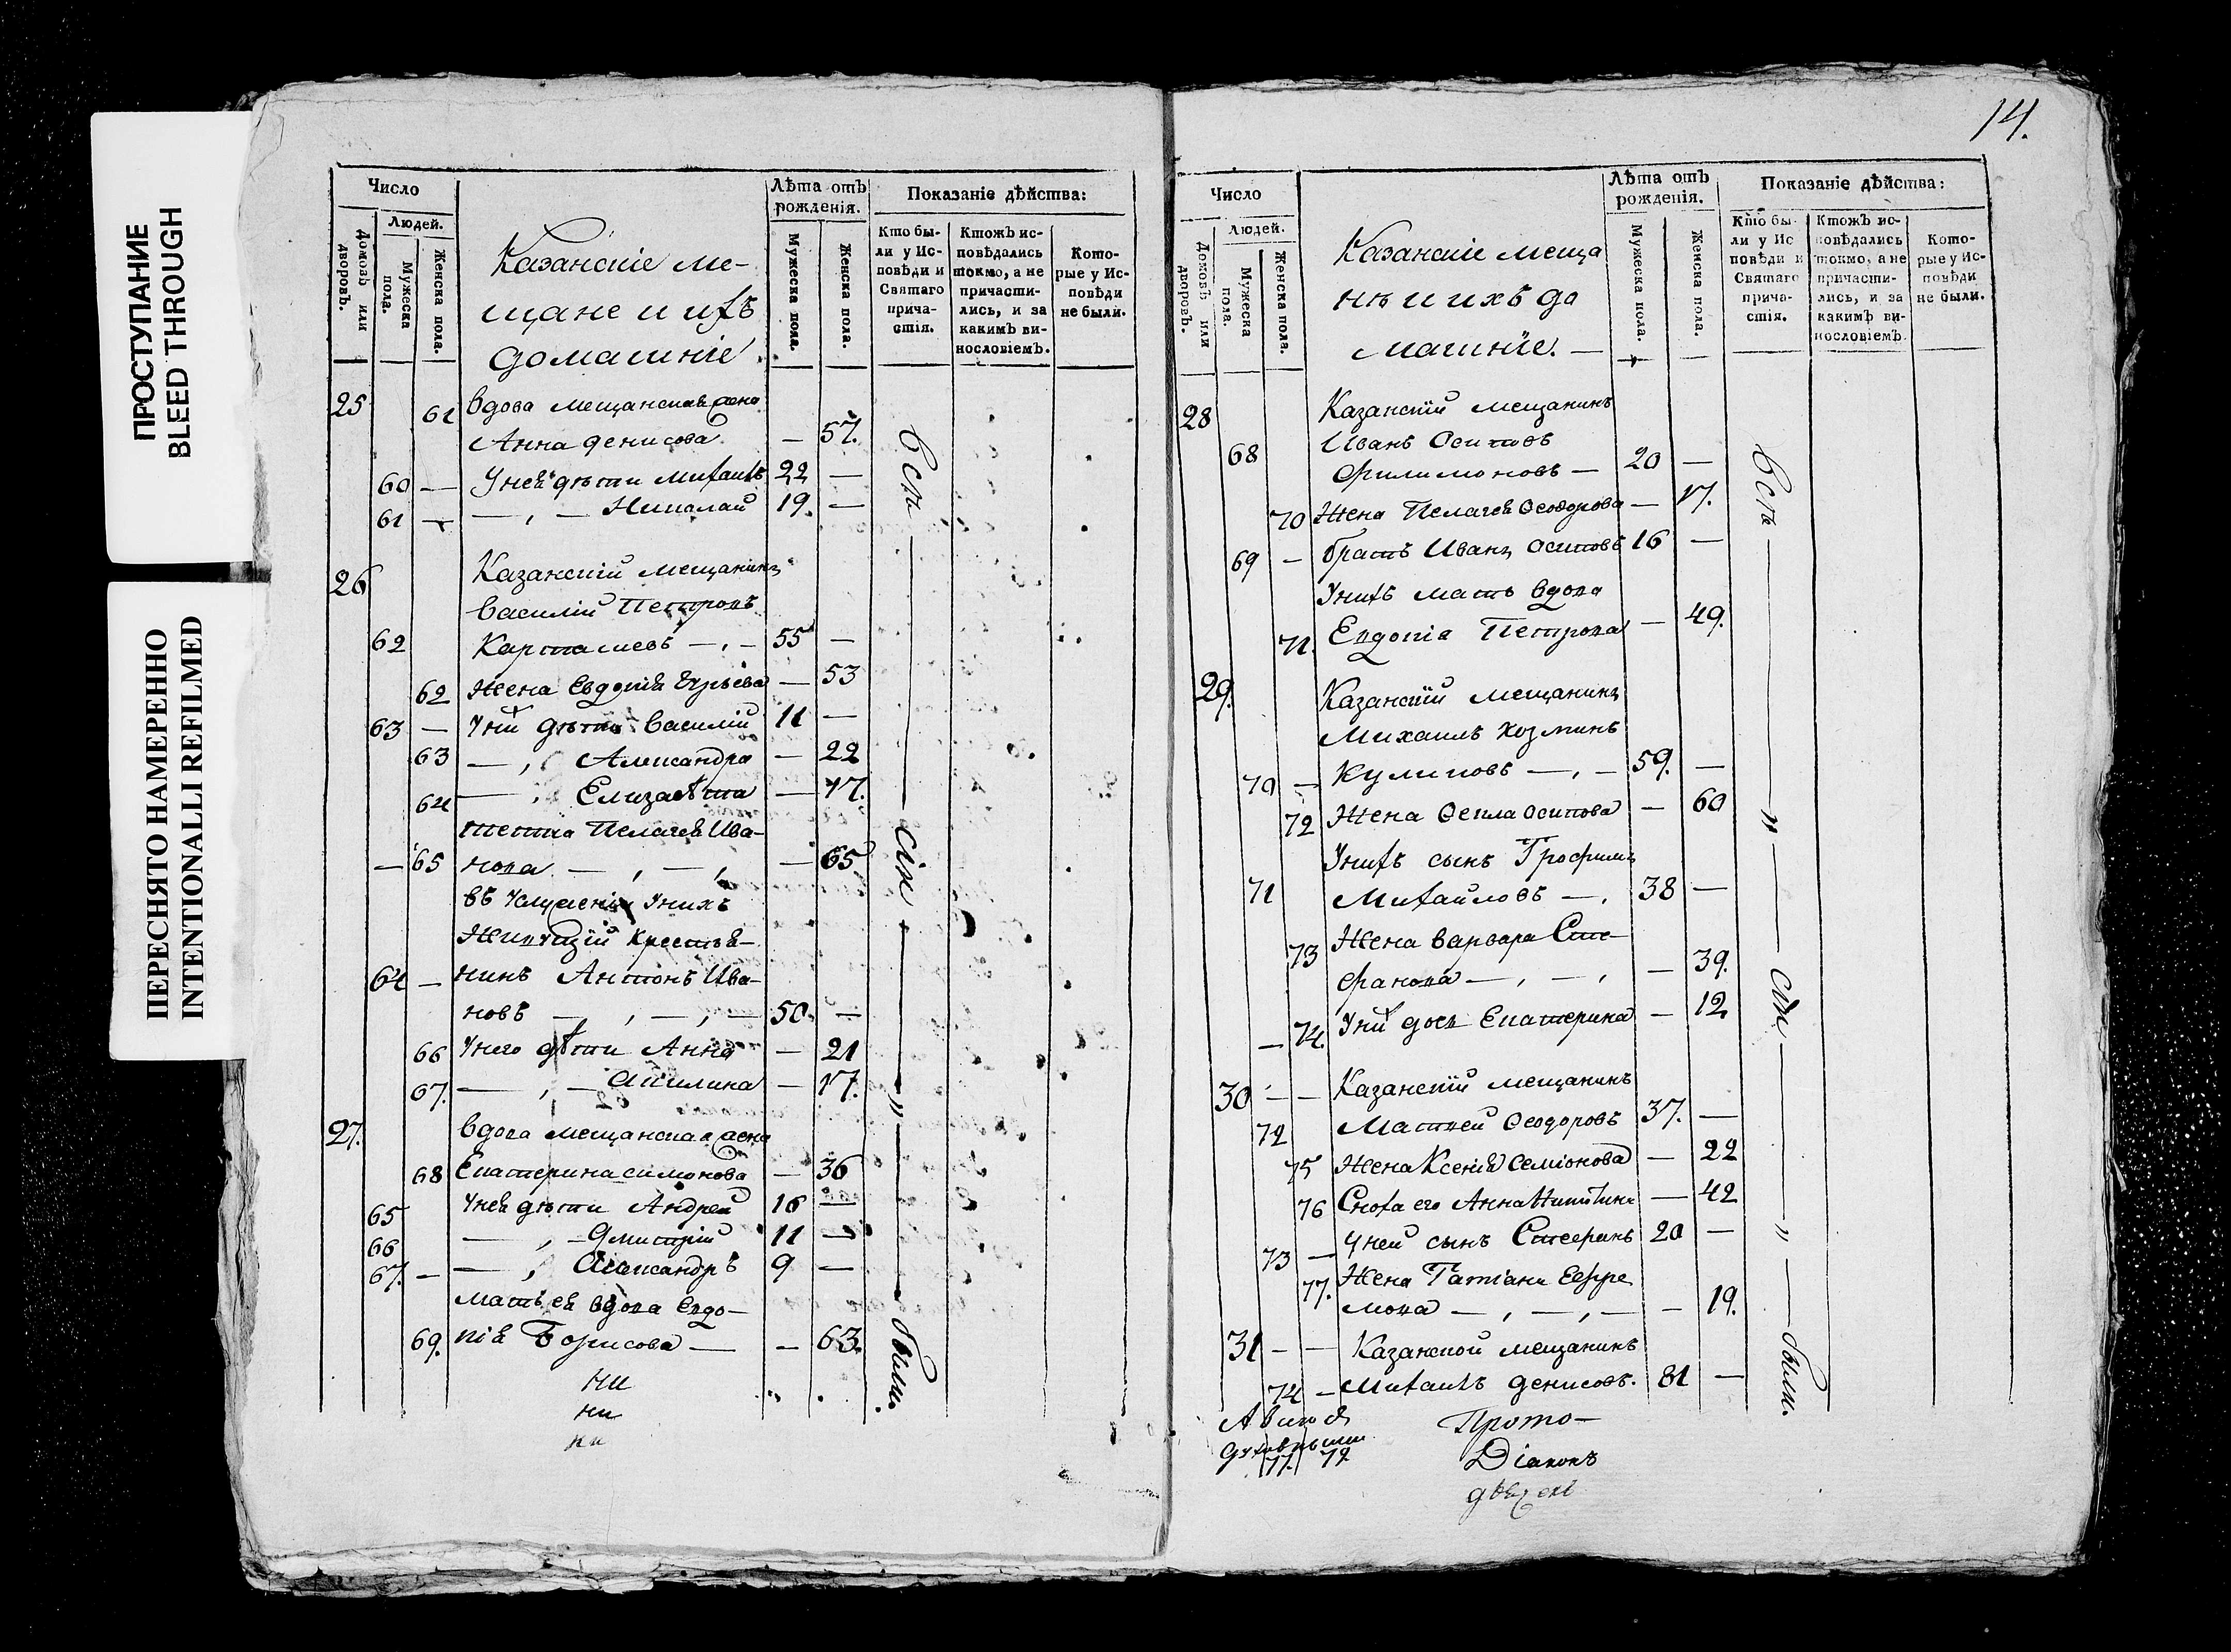 ПРОСТУПАНИЕ
BLEED THROUGH
ПЕРЕСНЯТО НАМЕРЕННО
INTENTIONALLI REFILMED
Число
Людей.
Домовъ или дворовъ.
Мужеска пола.
Женска пола.
Казанскіе ме-
щане и ихъ
домашніе.
Лѣта отъ рожденія.
Мужеска пола.
Женска пола.
Показаніе дѣйства:
Кто бы-
ли у Ис-
повѣди и
Святаго
прича-
стія.
Ктожъ ис-
повѣдались
токмо, а не
причасти-
лись, и за
какимъ ви-
нословіемъ.
Кото-
рые у Ис-
повѣди
не были.
25 61 вдова мещанская жена
Анна денисова — 57.
60 — У нея дѣти Михаилъ 22 —
61 — — , — Николай 19. —
26 Казанскій мещанинъ
Василій Петровъ
62 Карташевъ — , — 55 —
62 Жена Евдокія — 53
63 — У них дѣти Василій 11 —
63 — , Александра — 22
64 — , Елизавѣта — 17.
тетка Пелагея Ива-
— 65 нова — , — , — 65
въ услуженіи у нихъ
Живущій крестья-
64 — нинъ Антонъ Ива-
новъ — , — , — 50. —
66 У него дѣти Анна — 21
67. — , — Акилина — 17.
27. вдова мещанская жена
68 Екатерина симонова — 36
65 У нея дѣти Андрей 16 —
66 — , — Дмитрій 11 —
67. — — , Александръ 9 —
мать ея вдова Евдо-
69. кія Борисова — — 63.
всѣ — сіи — „ — были.
ни
ни
ки
14.
Число
Людей.
Домовъ или дворовъ.
Мужеска пола.
Женска пола.
Казанскіе меща
нѣ и ихъ до
машніе. —
Лѣта отъ рожденія.
Мужеска пола.
Женска пола.
Показаніе дѣйства:
Кто бы-
ли у Ис
повѣди и
Святаго
прича-
стія.
Ктожъ ис-
повѣдались
токмо, а не
причасти-
лись, и за
какимъ ви-
нословіемъ.
Кото-
рые у Ис-
повѣди
не были.
28 Казанскій мещанинъ
Иванъ Осиповъ
68 Филимоновъ — 20 —
70 Жена Пелагея Ѳеодорова — 17.
69 — братъ Иванъ Осиповъ 16 —
У нихъ мать вдова
71. Евдокія Петрова — 49.
29. Казанскій мещанинъ
Михаилъ Козминъ
70 — Куликовъ — , — 59. —
72 Жена Ѳекла Осипова — 60
У нихъ сынъ Трофимъ
71 Михайловъ — , 38 —
73 Жена варвара Сте-
фанова — , — , — 39.
— 74. У них дочь Екатерина — 12
30 — — Казанскій мещанинъ
72 Матвей Ѳеодоровъ 37. —
75 Жена Ксенія Семіонова — 22
76 Сноха его Анна Никитина — 42
73 — У ней сынъ Стефанъ 20 —
77. Жена Татіана Ефре
мова — , — , — — 19.
31 — — Казанской мещанинъ
74 — Михаилъ денисовъ. 81 —
всѣ — „ — сіи — „ — были.
А
77. 79.
Прото-
Діаконъ